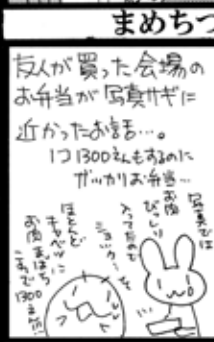 まめちつ
友人が買った会場の
お弁当が写真サギに
近かったお話…。
1つ1300えんもするのに
ガッカリお弁当…
写真では
お肉
びっしり
入ってたので
ショック…を
ほとんど
キャベツに
お肉まばら
これで1300